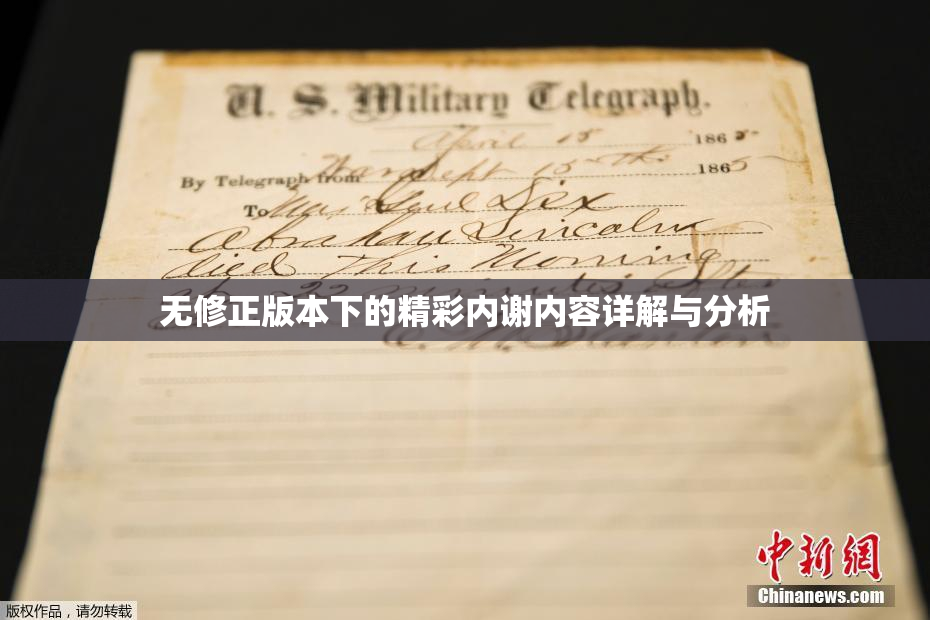 U. S. Military Telegraph.
April 15 1865
By Telegraph from War Dept 15th 1865
To Maj Genl Dix
Abraham Lincoln
died This Morning
22 minutes after
无修正版本下的精彩内谢内容详解与分析
E. M. Stanton
中新網
Chinanews.com
版权作品，请勿转载